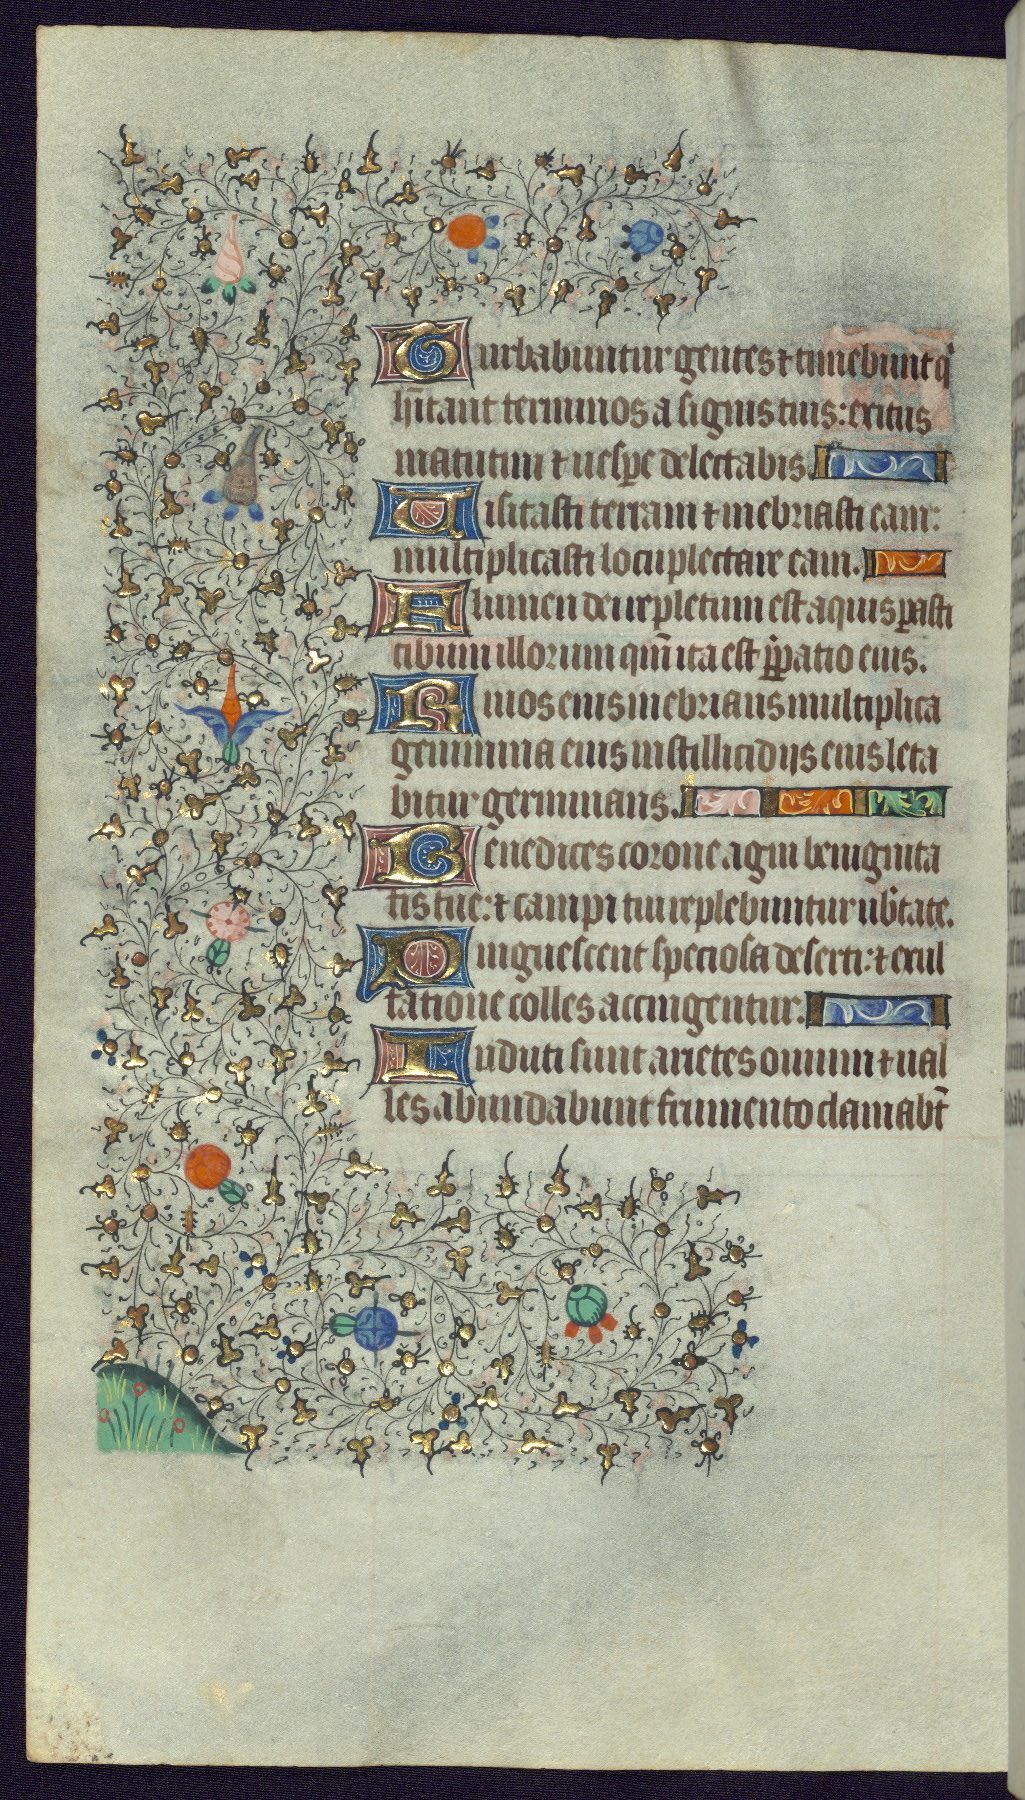 Turbabuntur gentes ⁊ timebunt q̇
hītant terminos a signis tuis: exitus
matutini ⁊ uesꝑe delectabis.
Uisitasti terram ⁊ inebriasti eam:
multiplicasti locupletare eam.
Flumen dei repletum est aquis parasti
cibum illorum qm̄ ita est p̄paratio eius.
Riuos eius inebrians multiplica
genimina eius in stillicidijs eius leta
bitur germinans.
Benedices corone agni benignita
tis tue: ⁊ campi tui replebuntur ub̄tate.
Pinguescent speciosa deserti: ⁊ exul
tatione colles accingentur.
Induti sunt arietes ouium ⁊ ual
les abundabunt frumento clamabt̄